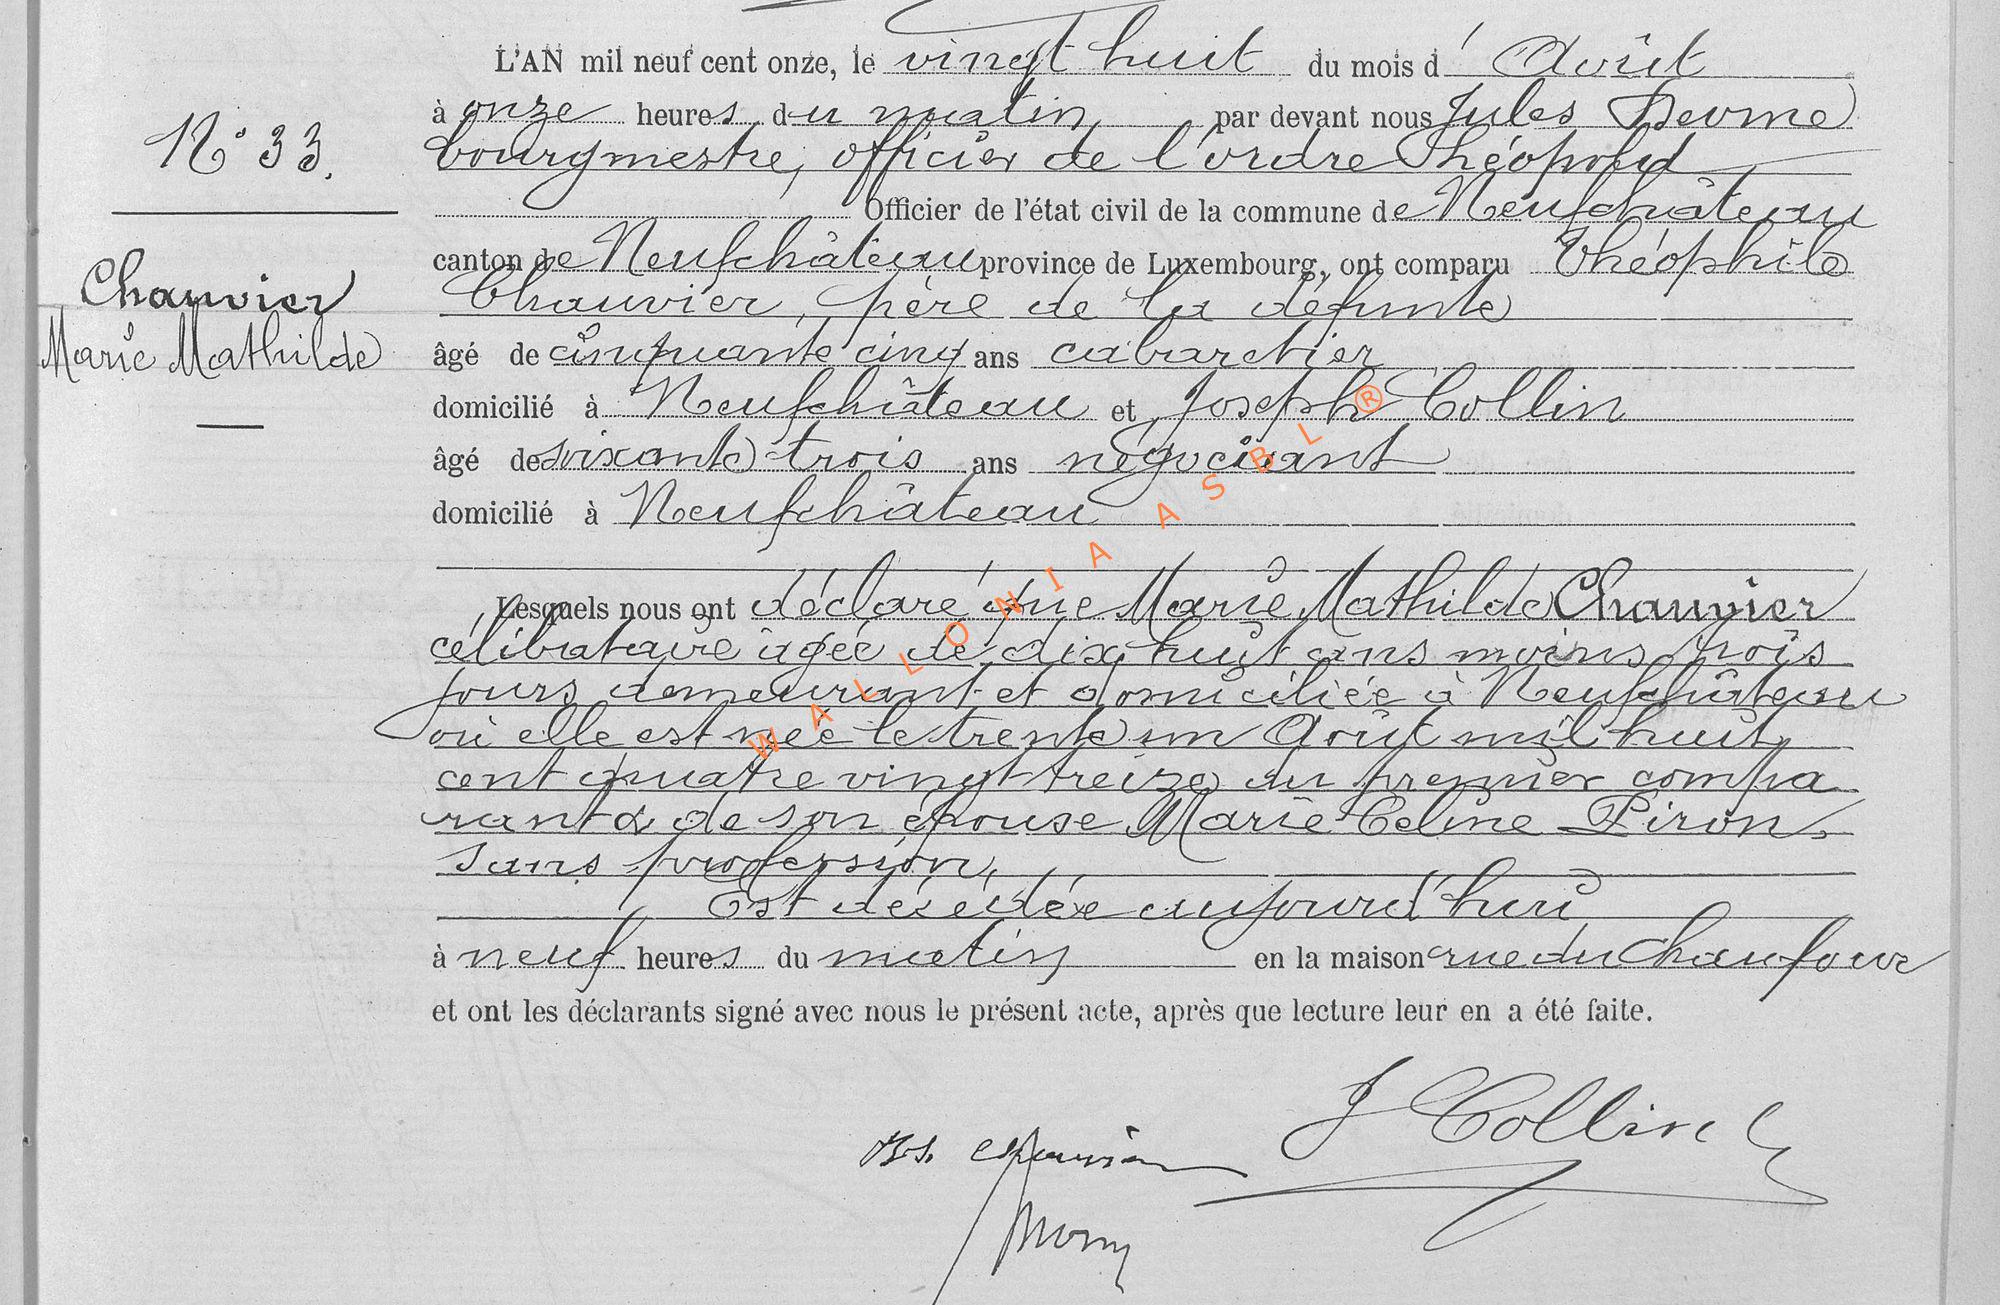 L'AN mil neuf cent onze, le vingt huit du mois d' Août
à onze heures du matin par devant nous Jules
N° 33.
bourgmestre, officier de l'ordre Théopold
Officier de l'état civil de la commune de Neufchâteau
canton de Neufchâteau province de Luxembourg, ont comparu Théophile
Chauvier
Chauvier, père de la défunte
Marie Mathilde
âgé de cinquante cinq ans cabaretier
domicilié à Neufchâteau et Joseph Collin
âgé de soixante trois ans négociant
domicilié à Neufchâteau
WALLONIA ASBL ®
Lesquels nous ont déclaré que Marie Mathilde Chauvier
célibataire âgée de dix huit ans moins trois
jours demeurant et domiciliée à Neufchâteau
où elle est née le trente un Août mil huit
cent quatre vingt treize du premier compa
rant & de son épouse Marie Celine Piron
sans profession,
Est décédée aujourd'hui
à neuf heures du matin en la maison rue du Chaufour
et ont les déclarants signé avec nous le présent acte, après que lecture leur en a été faite.
J Collin
Chauvier